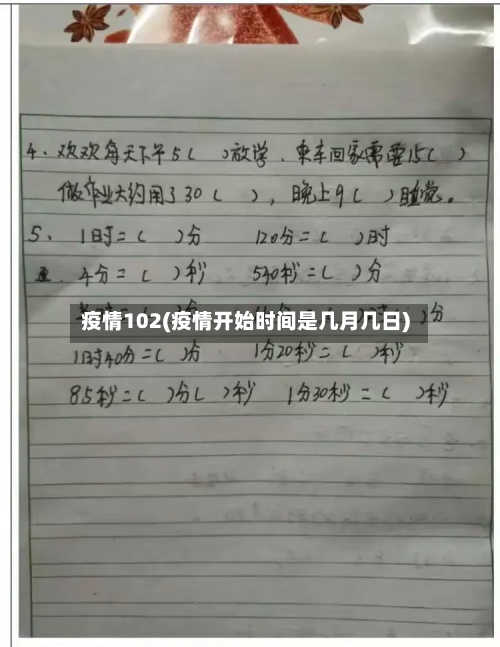 4、欢欢每天下午5( )放学，乘车回家需要15( )
做作业大约用了30( )，晚上9( )睡觉。
5、 1时=( )分 120分=( )时
4分=( )秒 540秒=( )分
疫情102(疫情开始时间是几月几日)
)分
1时40分=( )分 1分20秒=( )秒
85秒=( )分( )秒 1分30秒=( )秒